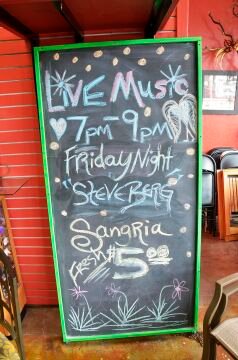 LIVE MUSIC
7pm-9pm
FRIDAY NIGHT
"STEVE BERG"
SANGRIA
FRESH $5.00